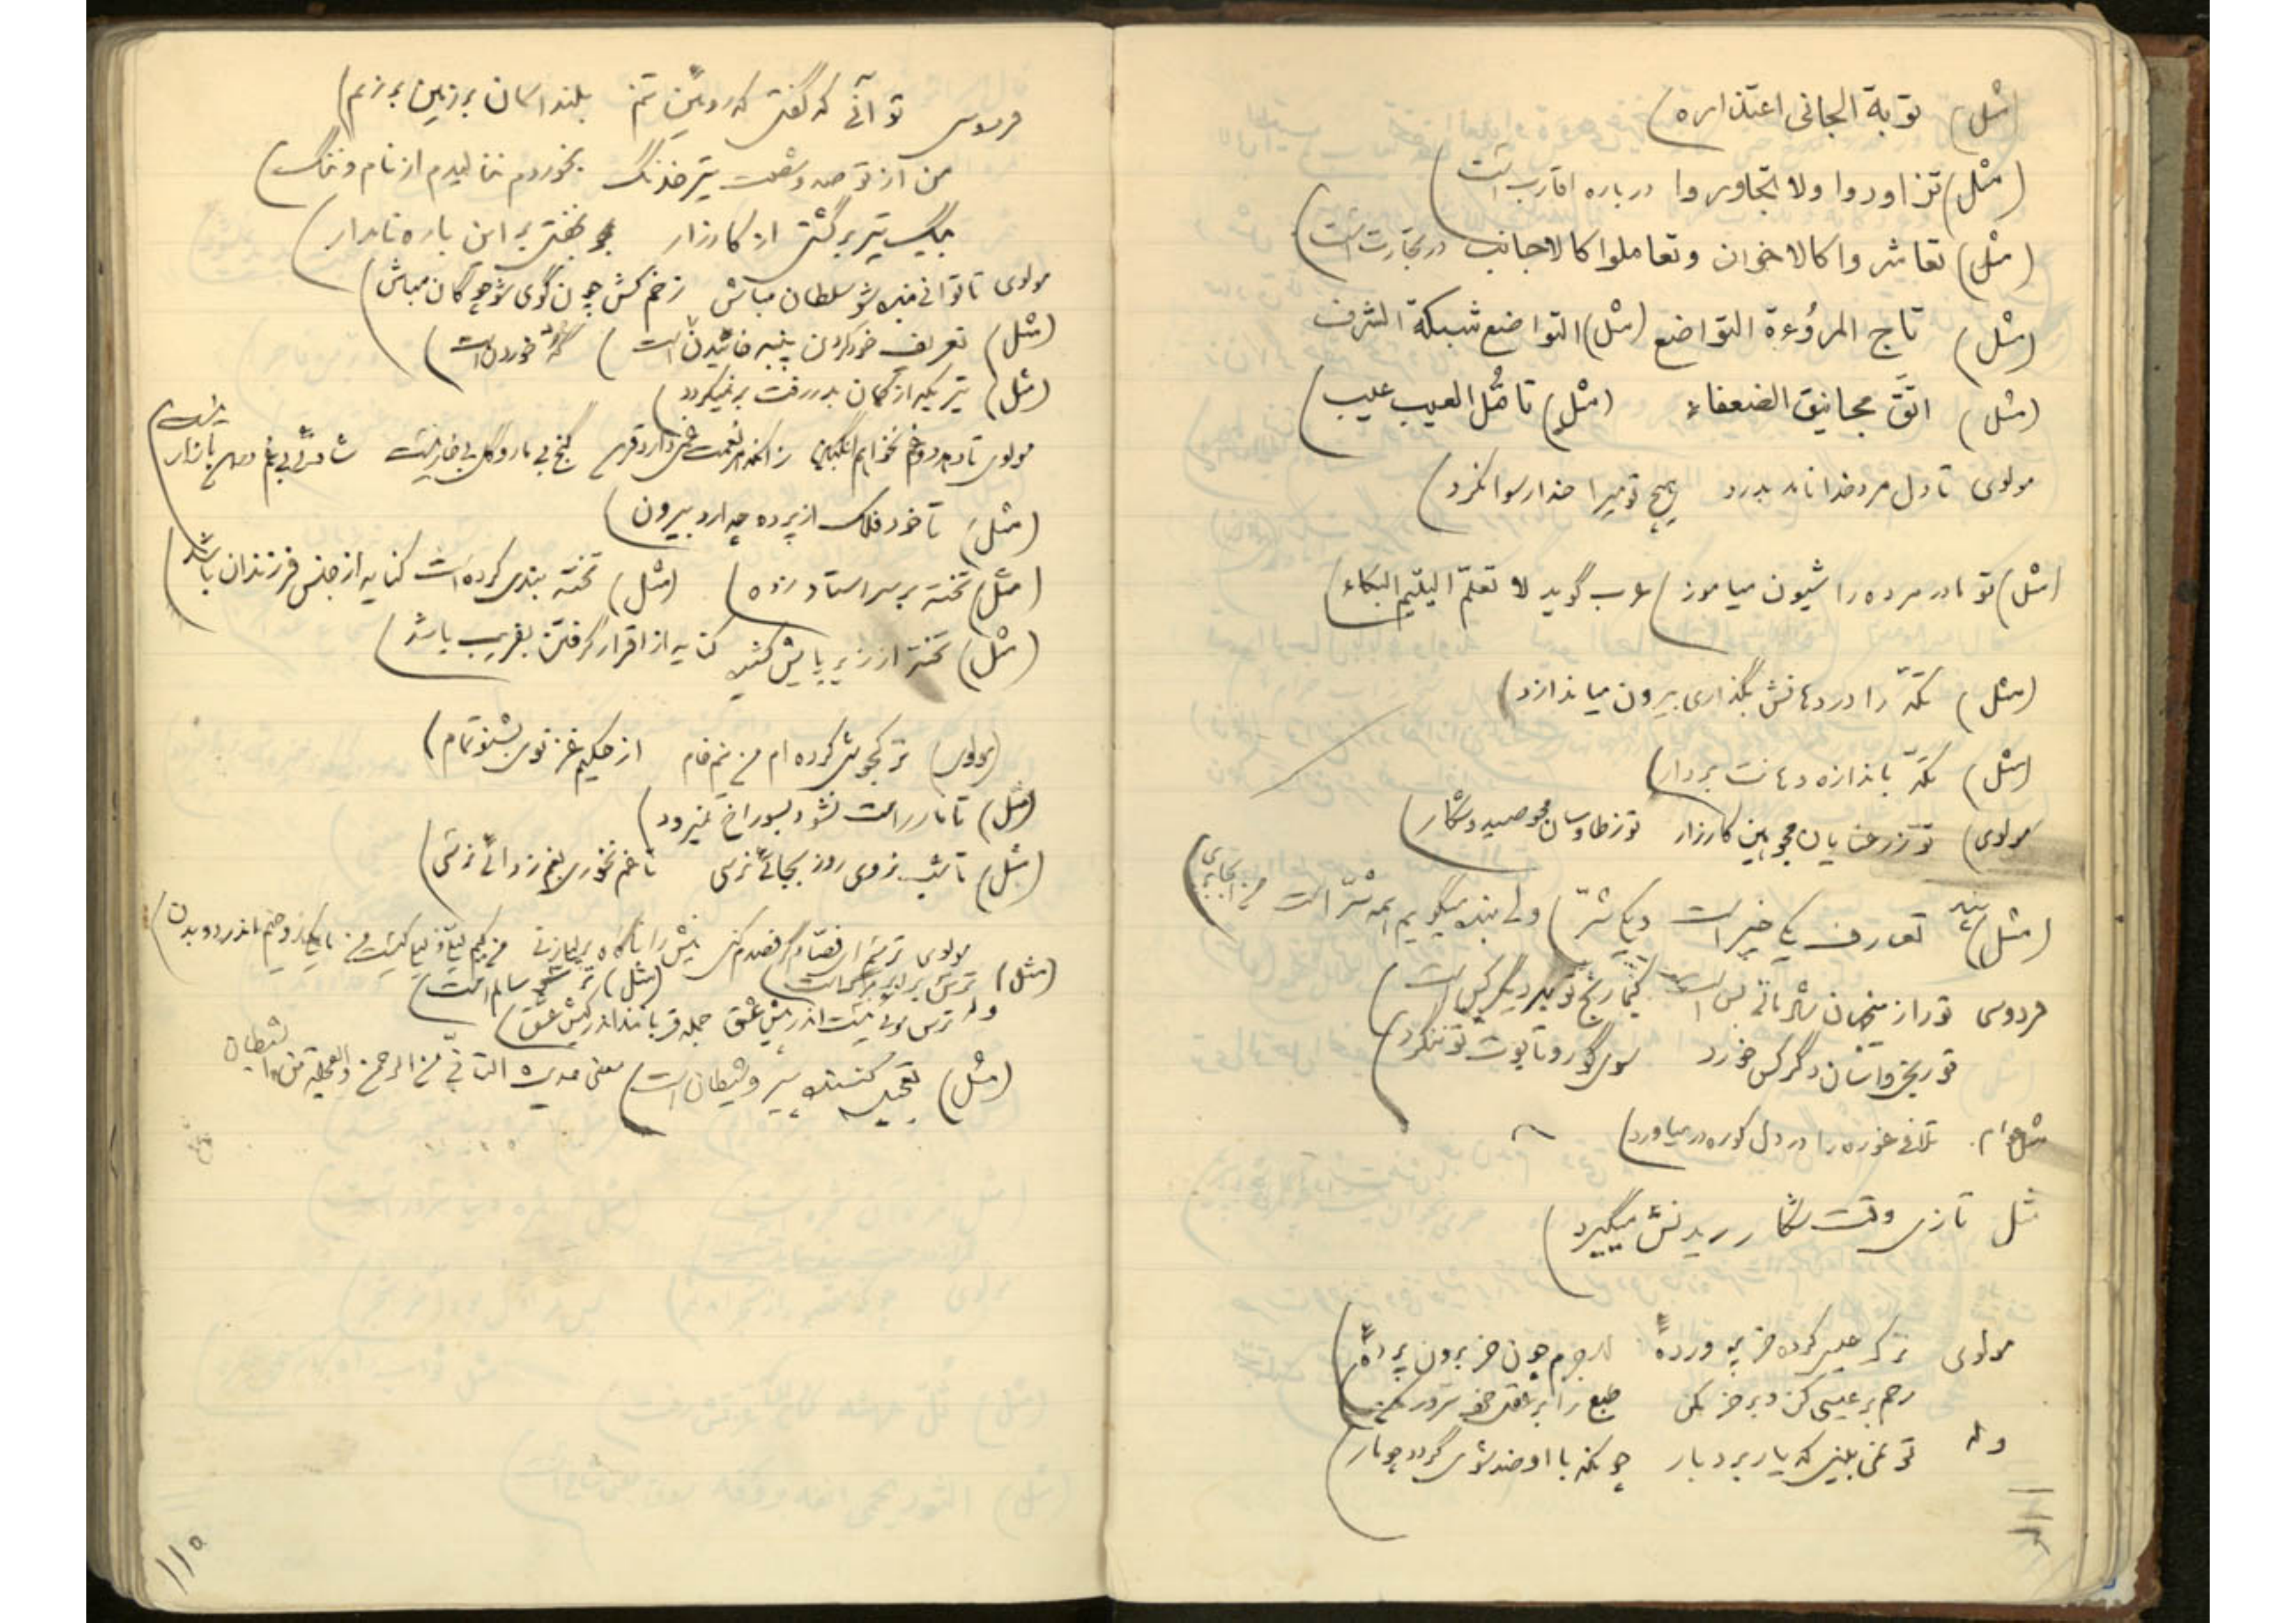 (مثل) توبة الجانی اعتذاره)
(مثل) تزاوروا ولا تجاوروا درباره اقارب است)
(مثل) تعاشروا کالاخوان وتعاملوا کالاجانب در تجارت است)
(مثل) تاج المروُءة التواضع (مثل) التواضع شبکة الشرف
(مثل) اتَّق مجانیق الضعفاء (مثل) تامُّل العیب عیب)
مولوی تا دل مرد خدا نامد بدرد هیچ قومیرا خدا رسوا نکرد)
(مثل) تو مادر مرده را شیون میاموز) عرب گوید لا تعلّم الیتیم البکاء)
(مثل) تکّه را در دهانش بگذاری بیرون میاندازد)
(مثل) تکّه باندازه دهانت بردار)
مولوی) تو ز رعنایان مجو هین کارزار تو ز طاوسان مجو صید و شکار)
(مثل) تعارف یکی خیر است و یکی شرّ) ولی بنده میگویم همه شرّ است
فردوسی تو را از میان
تو ریخی و آسان دگر کس خورد سوی گور و تابوت تو ننگرد)
مثل عوام. تلافی غوره را در دل کوره در میاورد)
مثل تازی وقت شکار ریدنش میگیرد)
مولوی ترک عیسی کرده خر پرورده لاجرم چون خر برون پرده)
رحم بر عیسی کن و بر خر مکن طبع را بر عقل خود سرور مکن)
وله تو نمی بینی که یار بردبار چونکه با او ضد شوی گردد چو مار)
فردوسی تو آنی که گفتی که روئین تنم بلند آسمان بر زمین بر زنم)
من از تو صد و شصت تیر خدنگ بخوردم ننالیدم از نام و ننگ)
بیک تیر برگشتی از کارزار بخفتی بر این باره نامدار)
مولوی تا توانی بنده شو سلطان مباش زخم کش چون گوی شو چوگان مباش)
(مثل) تعریف خود کردن پنبه خائیدن است) خوردن است)
(مثل) تیریکه از کمان بدر رفت بر نمیگردد)
مولوی گنج بی مار و گل بی خار نیست شادی بی غم در این بازار نیست)
(مثل) تا خود فلک از پرده چه آرد بیرون)
(مثل) تخته بر سر استاد زده) (مثل) تخته بندی کرده است کنایه از جنس فرزندان باشد)
(مثل) تخته از زیر پایش کشید کنایه از اقرار گرفتن بفریب باشد)
(مولوی) ترک جوشش کرده ام من نیم خام از حکیم غزنوی بشنو تمام)
(مثل) تا مار راست نشود بسوراخ نمیرود)
(مثل) تا شب نروی روز بجائی نرسی تا غم نخوری بغم زدائی نرسی)
مولوی ترسم ای فصّاد گر فصدم کنی نیش را ناگاه بر لیلی زنی
(مثل) ترس برادر مرگ است) (مثل)
وله ترس موئی نیست اندر پیش عشق جمله قربانند اندر کیش عشق)
(مثل) تعجیل کننده پیرو شیطان است) معنی حدیث التأنّی من الرحمن والعجلة من الشیطان
۱۱۵